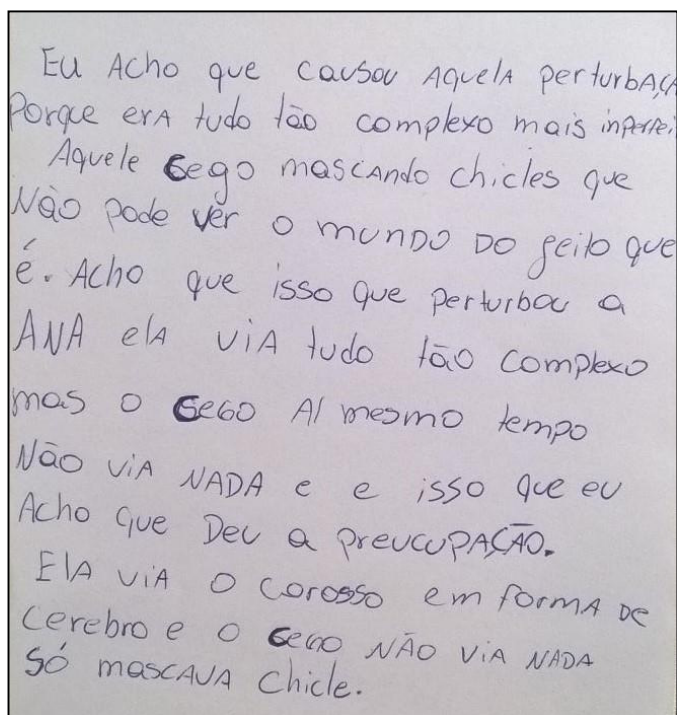 Eu Acho que causou Aquela perturbAçA
Porque erA tudo tão complexo mais inperfei
Aquele Cego mascando chicles que
Não pode ver o munDo Do geito que
é. Acho que isso que perturbou a
ANA elA viA tudo tão complexo
mas o CeGo Al mesmo tempo
Não viA NADA e e isso que eu
Acho que Deu a preucupAÇÃO.
ElA viA o corosso em formA De
cerebro e o Cego NÃo viA NADA
só mascAvA chicle.